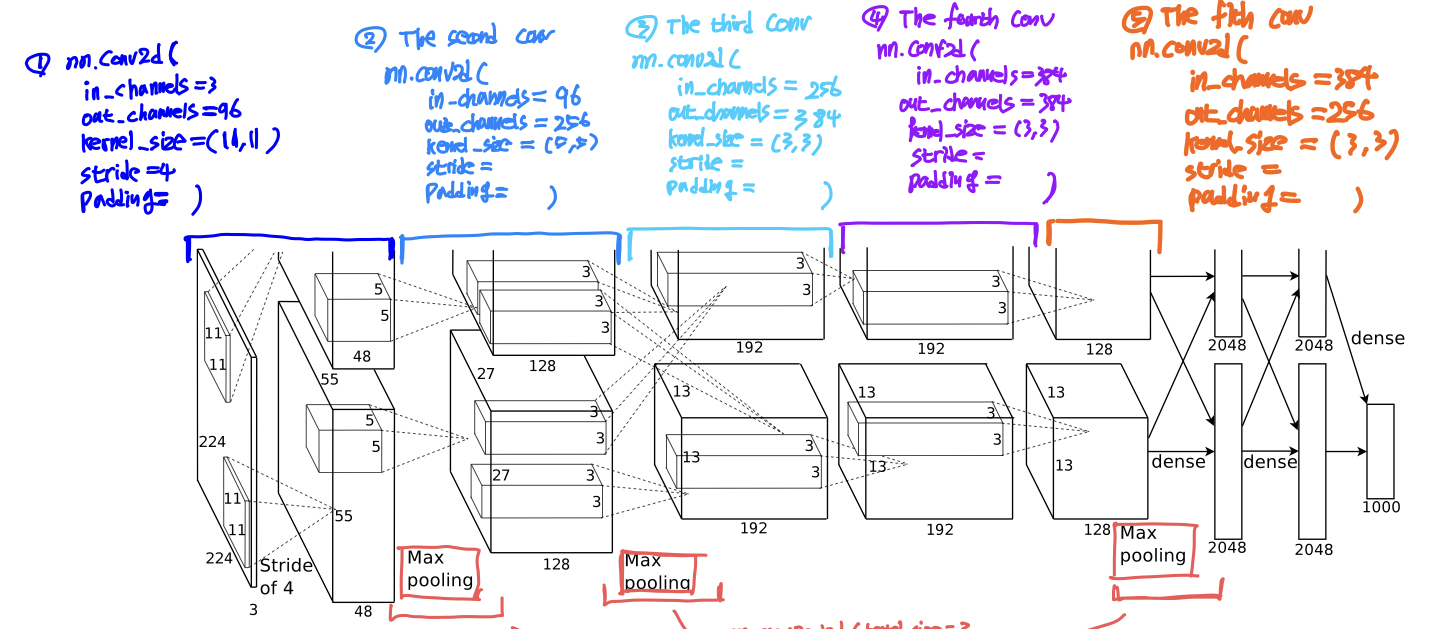 ① nn.Conv2d(
in_channels=3
out_channels=96
kernel_size=(11,11)
stride=4
padding= )
② The second conv
nn.conv2d(
in_channels= 96
out_channels = 256
kernel_size = (5,5)
stride=
Padding= )
③ The third Conv
nn.conv2d(
in_channels= 256
out_channels= 384
kernel_size= (3,3)
stride =
padding = )
④ The fourth Conv
nn.Conv2d(
in_channels=384
out_channels= 384
kernel_size = (3,3)
stride=
padding = )
⑤ The fifth Conv
nn.conv2d(
in_channels=384
out_channels=256
kernel_size = (3,3)
stride =
padding= )
11
11
224
11
11
224
3
Stride
of 4
5
5
48
55
5
5
55
48
3
3
3
128
27
3
3
27
3
3
128
Max
pooling
3
3
192
13
3
13
3
192
Max
pooling
3
3
192
13
3
3
13
192
128
13
13
128
Max
pooling
2048
2048
dense
dense
dense
2048
2048
1000